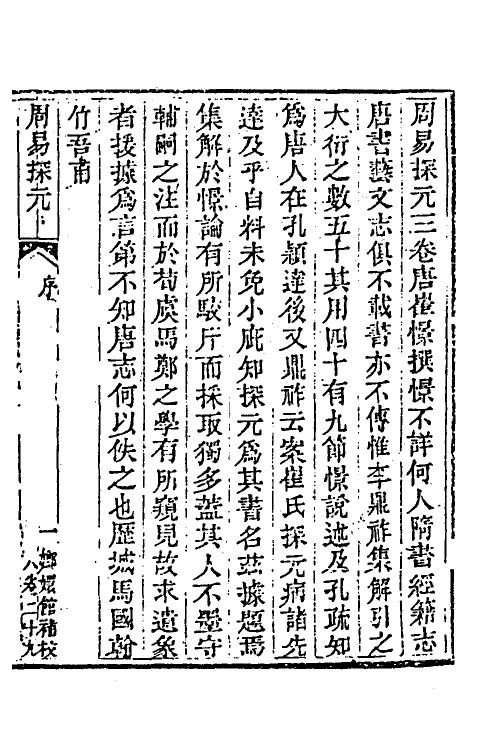 周易探元三卷唐崔憬撰憬不詳何人隋書經籍志
唐書藝文志俱不載書亦不傳惟李鼎祚集解引之
大衍之數五十其用四十有九節憬說述及孔疏知
爲唐人在孔穎達後又鼎祚云案崔氏探元病諸先
達及乎自料未免小疵知探元爲其書名茲據題焉
集解於憬論有所駁斥而採取獨多蓋其人不墨守
輔嗣之注而於荀虞馬鄭之學有所窺見故求遺象
者援據爲言第不知唐志何以佚之也歷城馬國翰
竹吾甫
周易探元
序
一
嫏嬛館補校
八卷二十九